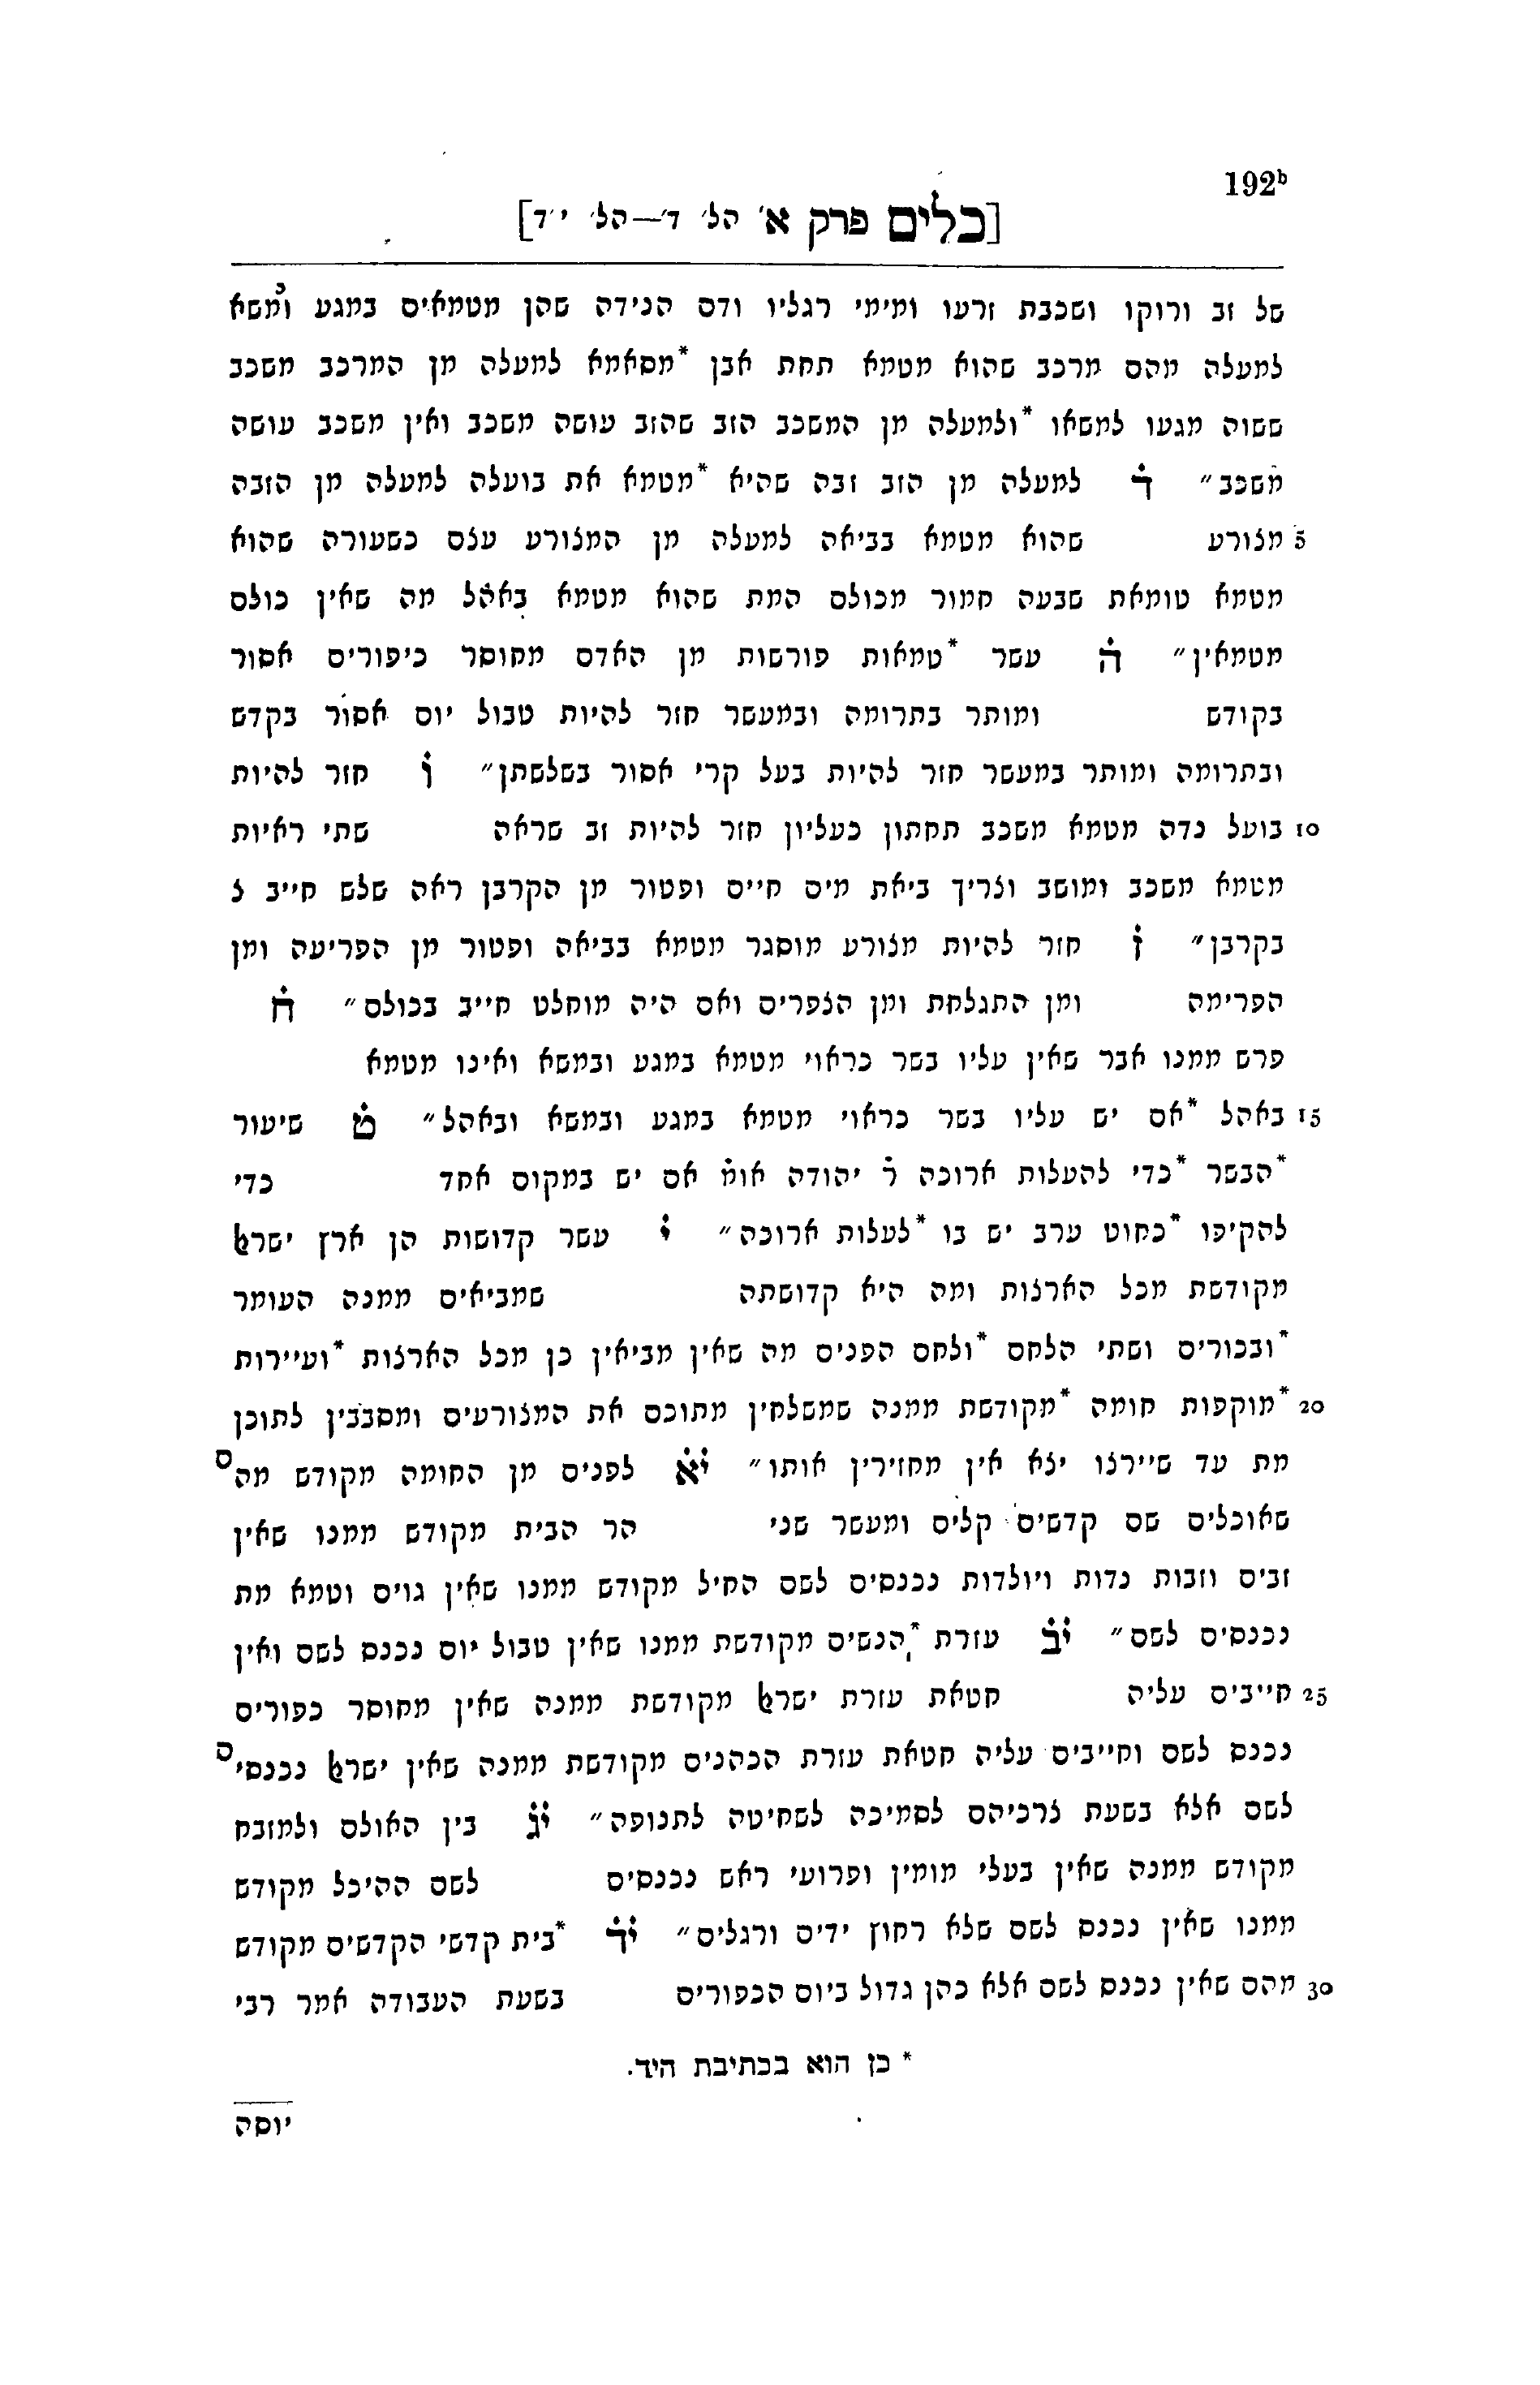 192b
[כלים פרק א׳ הל׳ ד׳—הל׳ י״ד]
של זב ורוקו ושכבת זרעו ומימי רגליו ודם הנידה שהן מטמאים במגע ומשא
למעלה מהם מרכב שהוא מטמא תחת אבן *מסאמא למעלה מן המרכב משכב
ששוה מגעו למשאו *ולמעלה מן המשכב הזב שהזב עושה משכב ואין משכב עושה
משכב״ ד למעלה מן הזב זבה שהיא *מטמא את בועלה למעלה מן הזבה
5 מצורע שהוא מטמא בביאה למעלה מן המצורע עצם כשעורה שהוא
מטמא טומאת שבעה חמור מכולם המת שהוא מטמא באהל מה שאין כולם
מטמאין״ ה עשר *טמאות פורשות מן האדם מחוסר כיפורים אסור
בקודש ומותר בתרומה ובמעשר חזר להיות טבול יום אסור בקדש
ובתרומה ומותר במעשר חזר להיות בעל קרי אסור בשלשתן״ ו חזר להיות
10 בועל נדה מטמא משכב תחתון כעליון חזר להיות זב שראה שתי ראיות
מטמא משכב ומושב וצריך ביאת מים חיים ופטור מן הקרבן ראה שלש חייב צ
בקרבן״ ז חזר להיות מצורע מוסגר מטמא בביאה ופטור מן הפריעה ומן
הפרימה ומן התגלחת ומן הצפרים ואם היה מוחלט חייב בכולם״ ח
פרש ממנו אבר שאין עליו בשר כראוי מטמא במגע ובמשא ואינו מטמא
15 באהל *אם יש עליו בשר כראוי מטמא במגע ובמשא ובאהל״ ט שיעור
*הבשר *כדי להעלות ארוכה ר יהודה אומ אם יש במקום אחד כדי
להקיפו *כחוט ערב יש בו *לעלות ארוכה״ י עשר קדושות הן ארץ ישרﭏ
מקודשת מכל הארצות ומה היא קדושתה שמביאים ממנה העומר
*ובכורים ושתי הלחם *ולחם הפנים מה שאין מביאין כן מכל הארצות *ועיירות
20 *מוקפות חומה *מקודשת ממנה שמשלחין מתוכם את המצורעים ומסבבין לתוכן
מת עד שיירצו יצא אין מחזירין אותו״ יא לפנים מן החומה מקודש מהם
שאוכלים שם קדשים קלים ומעשר שני הר הבית מקודש ממנו שאין
זבים וזבות נדות ויולדות נכנסים לשם החיל מקודש ממנו שאין גוים וטמא מת
נכנסים לשם״ יב עזרת *הנשים מקודשת ממנו שאין טבול יום נכנס לשם ואין
25 חייבים עליה חטאת עזרת ישרﭏ מקודשת ממנה שאין מחוסר כפורים
נכנס לשם וחייבים עליה חטאת עזרת הכהנים מקודשת ממנה שאין ישרﭏ נכנסים
לשם אלא בשעת צרכיהם לסמיכה לשחיטה לתנופה״ יג בין האולם ולמזבח
מקודש ממנה שאין בעלי מומין ופרועי ראש נכנסים לשם ההיכל מקודש
ממנו שאין נכנס לשם שלא רחוץ ידים ורגלים״ יד *בית קדשי הקדשים מקודש
30 מהם שאין נכנס לשם אלא כהן גדול ביום הכפורים בשעת העבודה אמר רבי
* כן הוא בכתיבת היד.
יוסה